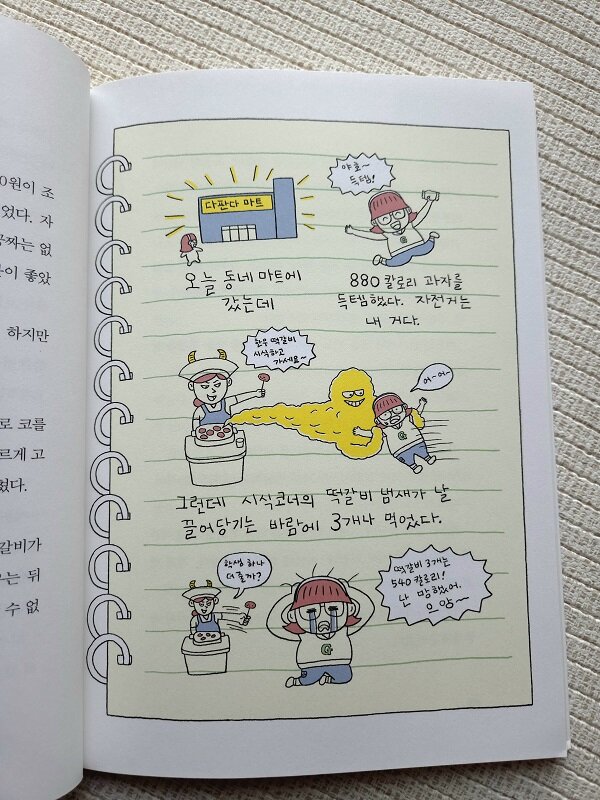 0원이 조
었다. 자
공짜는 없
이 좋았
하지만
로 코를
르게 고
켰다.
갈비가
는 뒤
수 없
다판다 마트
야호~
득템!
오늘 동네 마트에
갔는데
880 칼로리 과자를
득템했다. 자전거는
내 거다.
한우 떡갈비
시식하고
가세요~
어~어~
그런데 시식코너의 떡갈비 냄새가 날
끌어당기는 바람에 3개나 먹었다.
학생 하나
더 줄까?
떡갈비 3개는
540 칼로리!
난 망했어.
으앙~